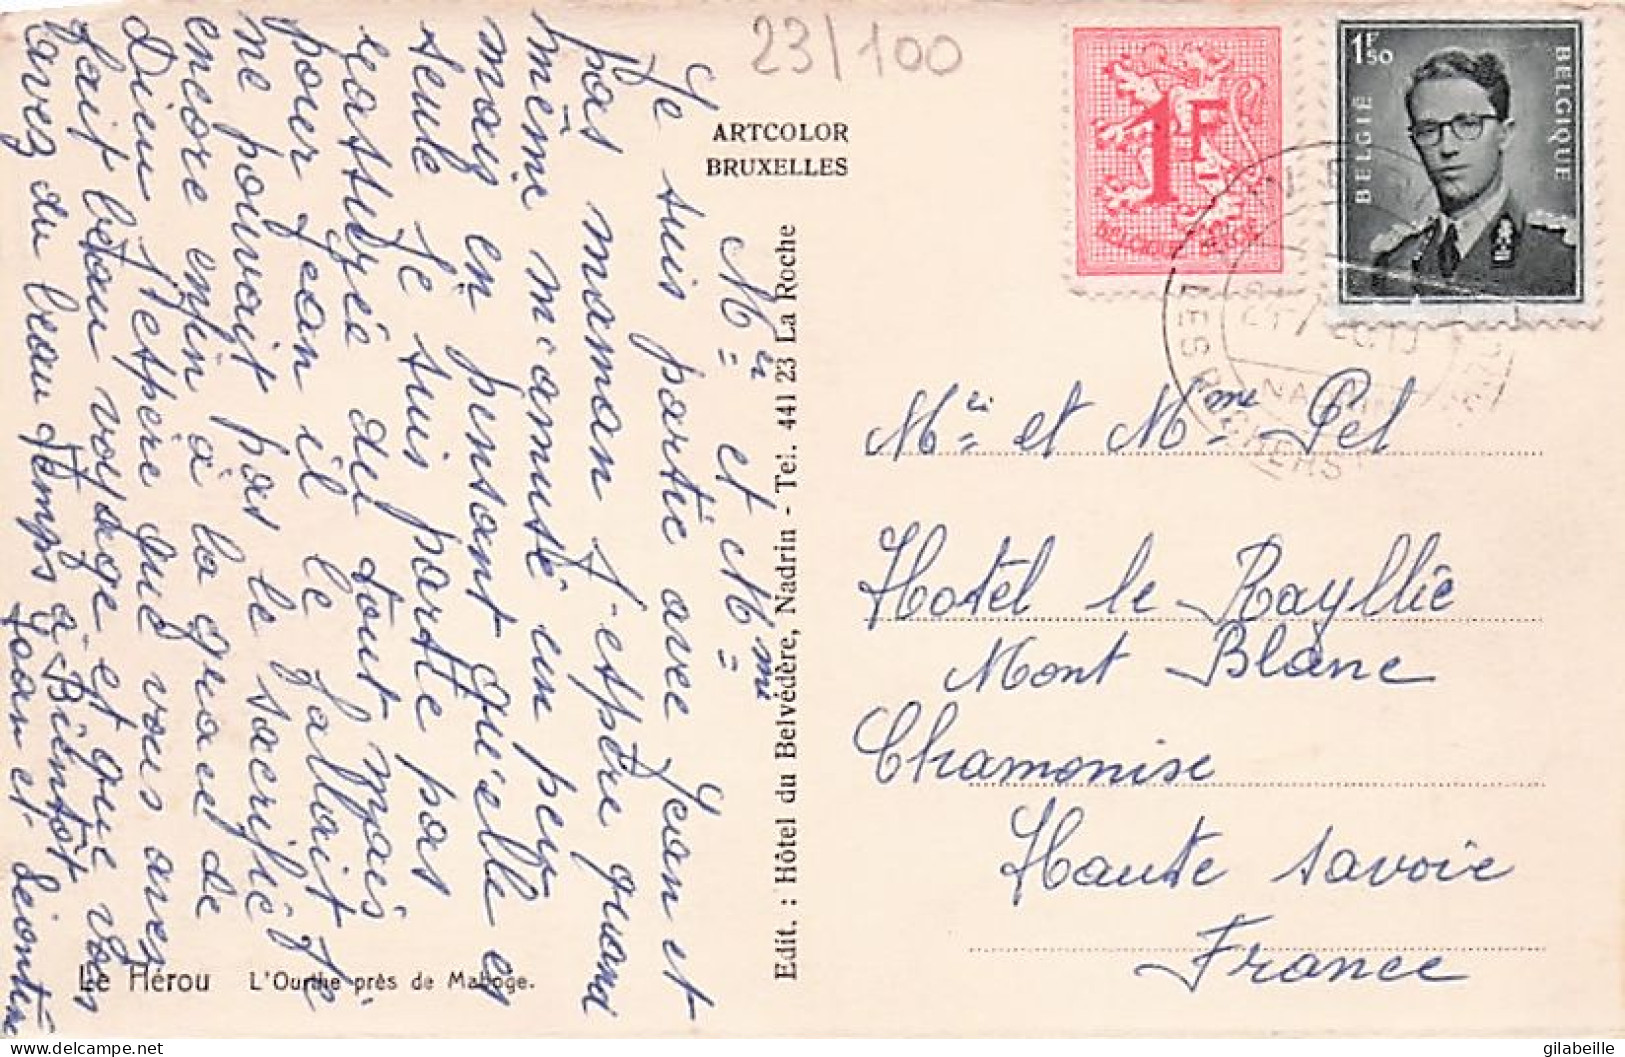 23/100
ARTCOLOR
BRUXELLES
1F
BELGIQUE BELGIË
1F50
BELGIË
BELGIQUE
NADRIN
Mr et Mme
Je suis partie avec Jean et
pas maman j'espère quand
même m'amusé un peu
mais en pensant qu'elle es
seule je suis parte pas
reattugée du tout mais
pour Jean il le fallait je
ne pouvait pas le sacrifié
encore enfin à la grace de
Dieu j'espère que vous avez
fait beau voyage et que vous
avez du beau temps à Bientôt
Jean et Léontine
Edit. : Hôtel du Belvédère, Nadrin - Tel. 441 23 La Roche
Mr et Mme Pel
Hotel le Rayllie
Mont Blanc
Chamonise
Haute Savoie
France
Le Hérou L'Ourthe près de Maboge.
gilabeille